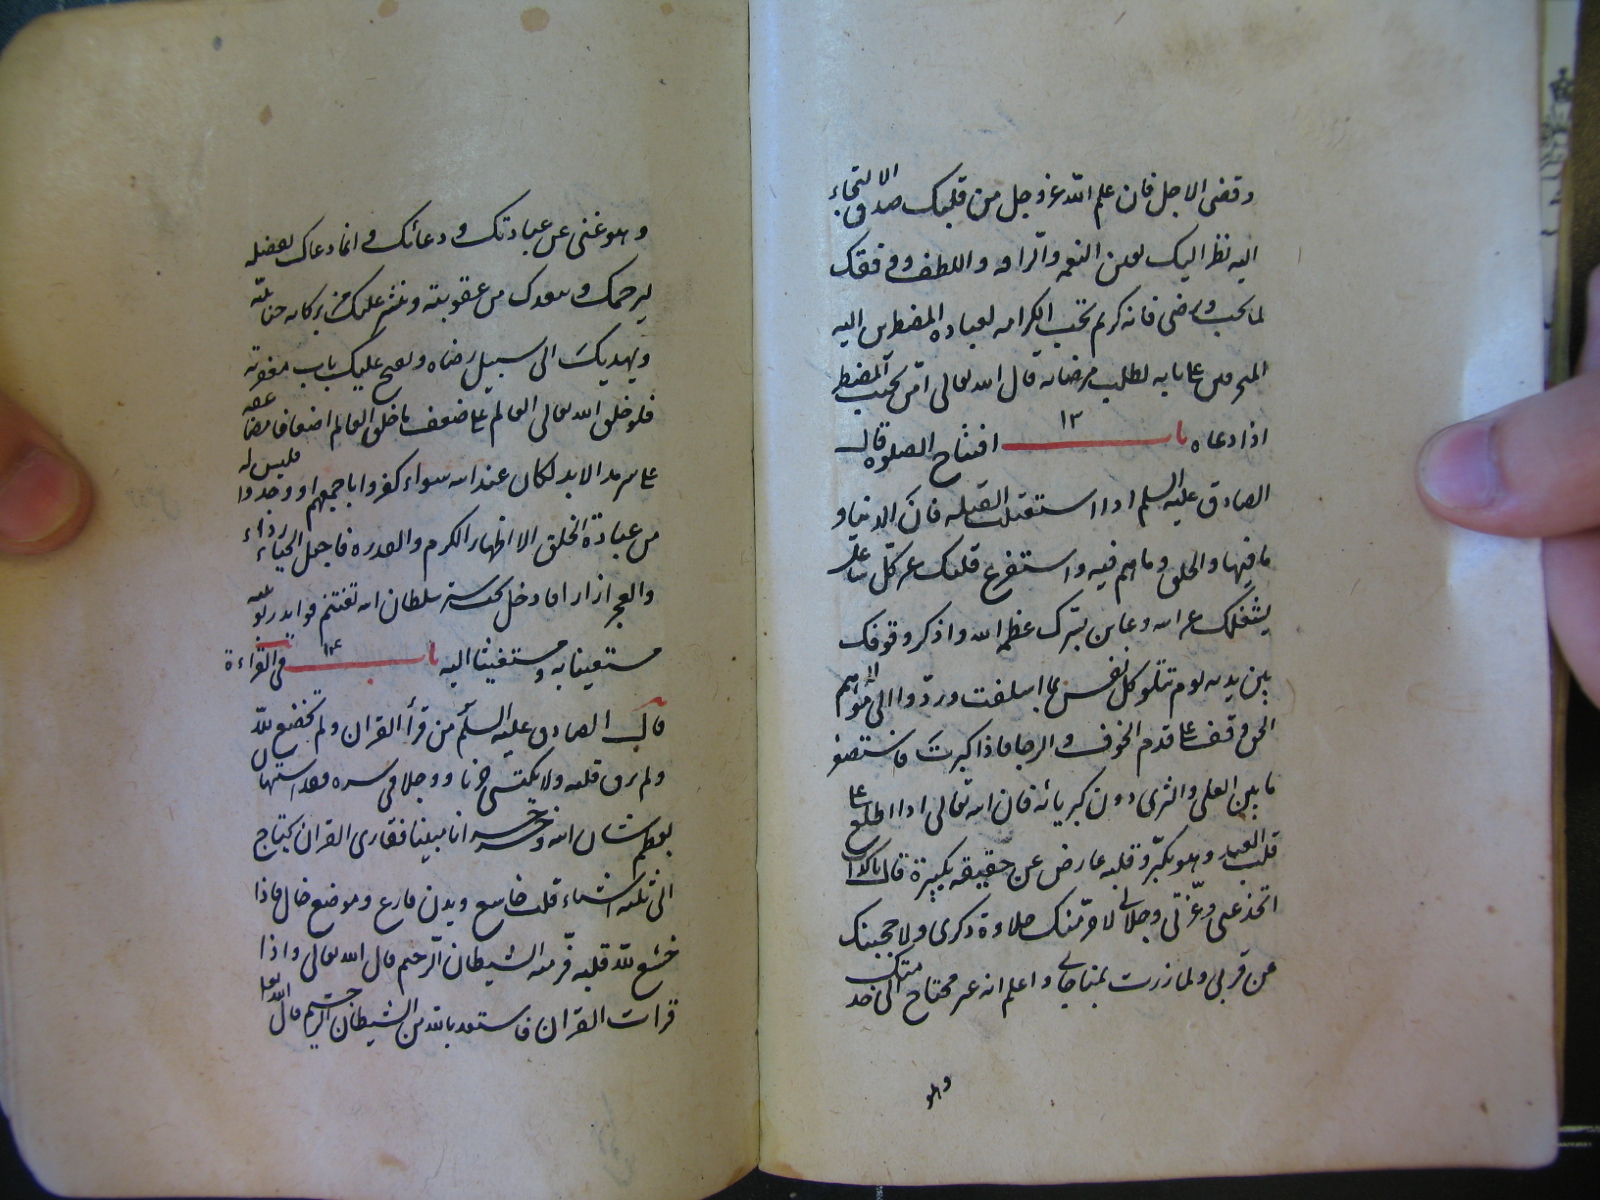 وقضى الاجل فان علم الله عزوجل من قلبك صدق الالتجاء
اليه نظر اليك بعين النعمه والرافه واللطف ووفقك
لما يحب ويرضى فانه كريم يحب الكرامه لعباده المضطرين اليه
المحرمين على بابه لطلب مرضاته قال الله تعالى امن يجيب المضطر
اذا دعاه باب ١٣ افتتاح الصلوة قال
الصادق عليه السلم اذا استقبلت القبله فان الدنيا و
ما فيها والخلق وما هم فيه واستفرغ قلبك عن كل شاغل
يشغلك عن الله وعاين بسرك عظمه الله واذكر وقوفك
بين يديه يوم تتلو كل نفس ما اسلفت وردوا الى الله مولهم
الحق وقف على قدم الخوف والرجا فاذا كبرت فاستصغر
ما بين العلى والثرى دون كبريائه فان الله تعالى اذا اطلع على
قلب العبد وهو يكبر وقلبه عارض عن حقيقه تكبيرة قال يا كذاب
اتخدعنى وعزتى وجلالى لاحرمنك حلاوة ذكرى ولاحجبنك
من قربى ولما زرت بمناجاتى واعلم انه غير محتاج الى خدمتك
وهو
وهو غنى عن عبادتك ودعائك وانما دعاك بفضله
ليرحمك ويبعدك من عقوبته وينشر عليك من بركات حنانيته
ويهديك الى سبيل رضاه ويفتح عليك باب مغفرته
فلو خلق الله تعالى العالم على ضعف ما خلق العالم اضعافا مضاعفه
على سرمد الابد لكان عند الله سواء كفروا باجمعهم او وحدوا فليس له
من عبادة الخلق الا اظهار الكرم والقدره فاجعل الحياء رداء
والعجز ازارا وادخل تحت ستر سلطان الله تغتنم فوايد ربوبيته
مستعينا به ومستغيثا اليه باب ١٤ فى القراءة
قال الصادق عليه السلم من قرأ القران ولم يخضع لله
ولم يرق قلبه ولا يكتسى حزنا ووجلا فى سره فقد استهان
بعظم شان الله وخسر خسرانا مبينا فقارى القران يحتاج
الى ثلثه اشياء قلب خاشع وبدن فارغ وموضع خال فاذا
خشع لله قلبه فر منه الشيطان الرجيم قال الله تعالى واذا
قرات القران فاستعذ بالله من الشيطان الرجيم قال الله تعالى